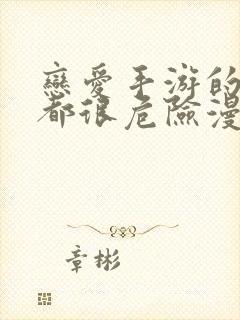 戀愛手游的
都很危險漫
章彬